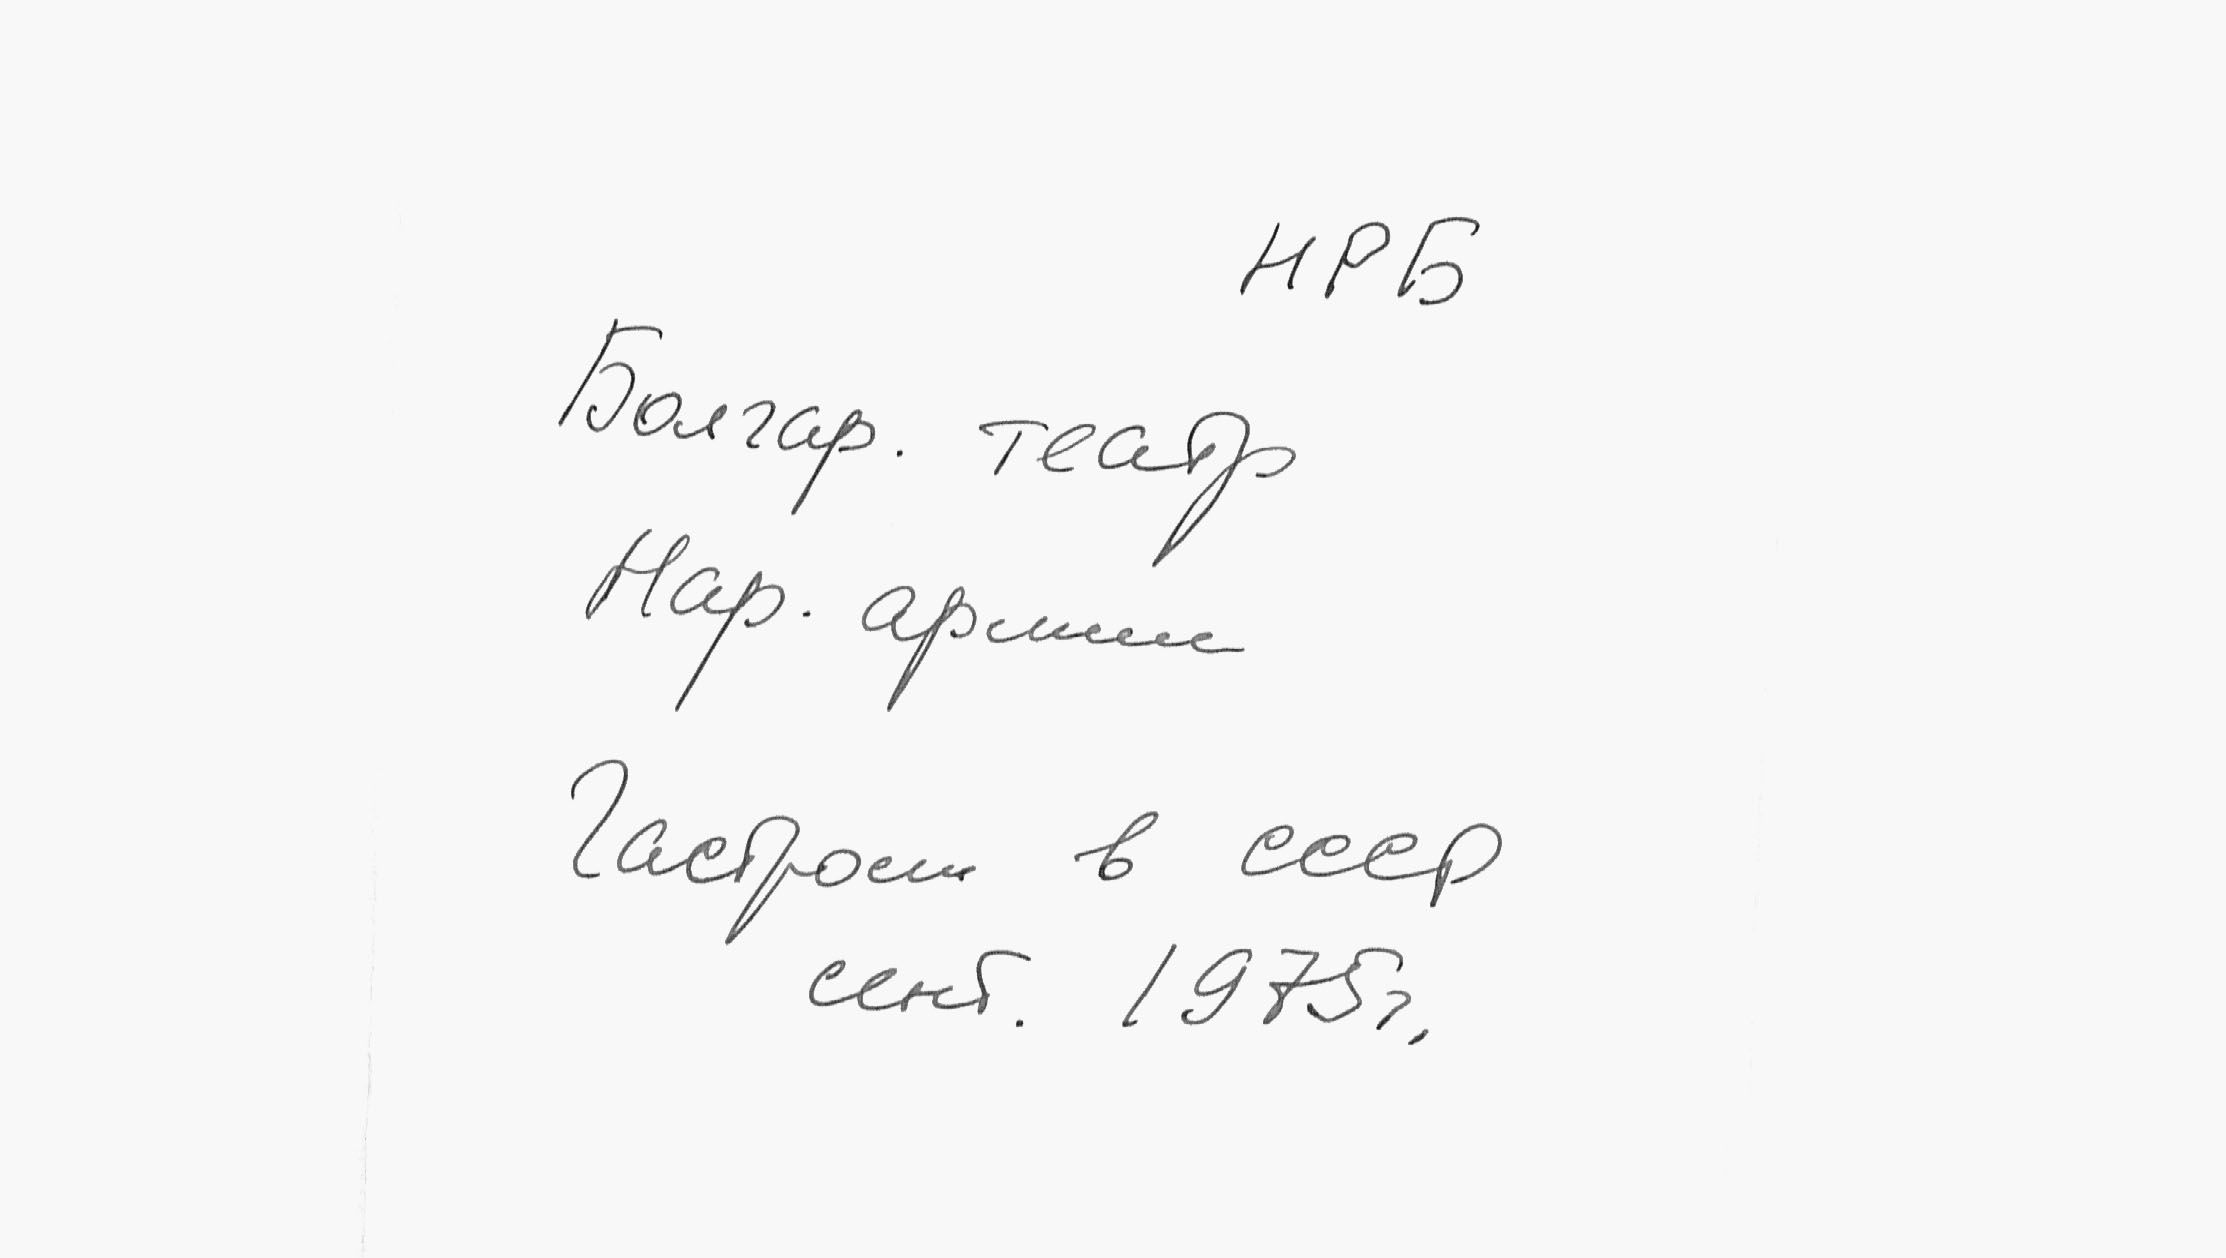 НРБ
Болгар. театр
Нар. армии
Гастроли в СССР
сент. 1975г.